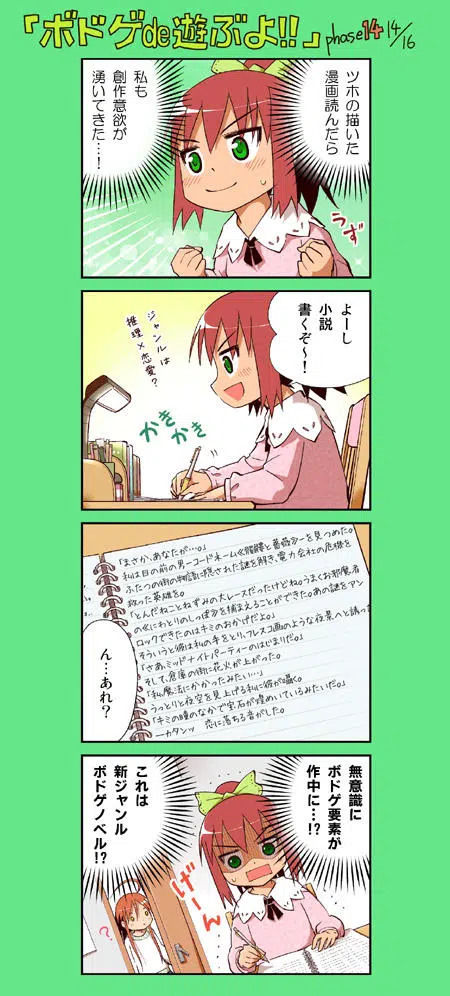 「ボドゲde遊ぶよ!!」phase14 14/16
ツホの描いた
漫画読んだら
私も
創作意欲が
湧いてきた…!
うず
よーし
小説
書くぞ〜!
ジャンルは
推理×恋愛?
かき
かき
「まさか、あなたが…。」
私は目の前の男―コードネーム≪髑髏と薔薇≫―を見つめた。
ふたつの街の物語に隠された謎を解き、電力会社の危機を
救った英雄を。
「とんだねことねずみの大レースだったけどね。うまくお邪魔者
の≪にわとりのしっぽ≫を捕まえることができた。あの謎をアン
ロックできたのはキミのおかげだよ。」
そういうと彼は私の手をとり、フレスコ画のような夜景へと誘った
「さあ、ミッドナイトパーティーのはじまりだ。」
そして、倉庫の街に花火が上がった。
「私、魔法にかかったみたい…」
うっとりと夜空を見上げる私に彼が囁く。
「キミの瞳のなかで宝石が煌めいているみたいだ。」
―カタンッ 恋に落ちる音がした。
ん…あれ?
無意識に
ボドゲ要素が
作中に…!?
これは
新ジャンル
ボドゲノベル!?
げーん
?